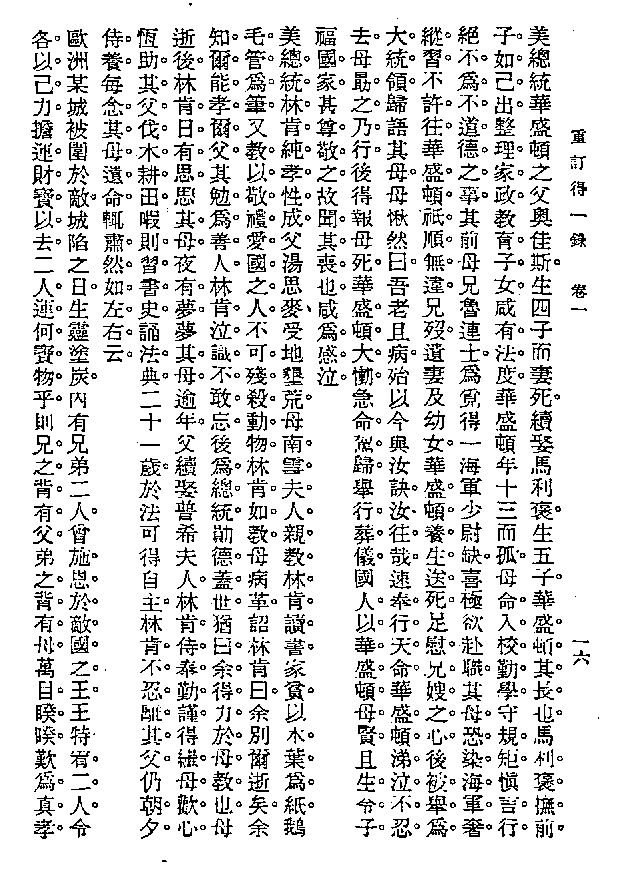 重訂得一錄　卷一　一六
美總統華盛頓之父奧佳斯生四子而妻死。續娶馬利褒生五子華盛頓其長也馬利褒撫前
子如己出整理家政教育子女咸有法度華盛頓年十三而孤。母命入校勤學守規矩慎言行
絕不爲不道德之事其前母兄魯連士爲當得一海軍少尉缺喜極欲赴職其母恐染海軍奢
縱習不許往華盛頓祇順無違兄歿遺妻及幼女華盛頓養生送死足慰兄嫂之心後被舉爲
大統領歸語其母母愀然曰吾老且病殆以今與汝訣汝往哉速奉行天命華盛頓涕泣不忍
去母勗之乃行後得報母死華盛頓大慟急命駕歸舉行葬儀國人以華盛頓母賢且生令子
福國家甚尊敬之故聞其喪也咸爲感泣。
美總統林肯純孝性成父湯思麥受地墾荒母南雪夫人親教林肯讀書家貧以木葉爲紙鵝
毛管爲筆又教以敬禮愛國之人不可殘殺動物林肯如教母病革詔林肯曰余別爾逝矣余
知爾能孝爾父其勉爲善人林肯泣識不敢忘後爲總統勛德蓋世猶曰余得力於母教也母
逝後林肯日有思思其母夜有夢夢其母逾年父續娶普希夫人林肯侍奉勤謹得繼母歡心
恆助其父伐木耕田暇則習書史誦法典二十一歲於法可得自主林肯不忍離其父仍朝夕
侍養每念其母遺命輒肅然如左右云。
歐洲某城被圍於敵城陷之日生靈塗炭內有兄弟二人曾施恩於敵國之王王特宥二人令
各以己力擔運財寶以去二人運何寶物乎則兄之背有父弟之背有母萬目睽睽歎爲真孝